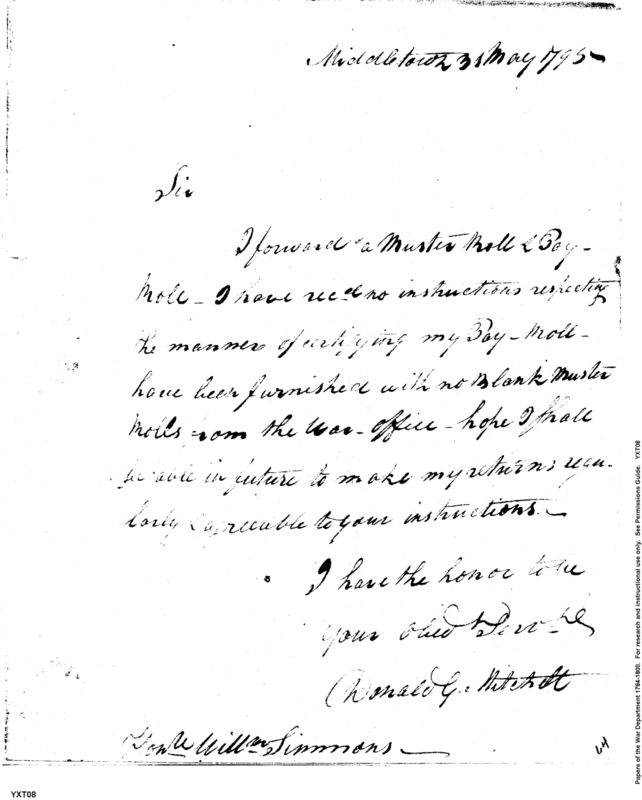 Middletown 31 May 1795
Sir
I forward a Muster Roll & Pay-
Roll - I have recd no instructions respecting
the manner of certifying my Pay-Roll-
have been furnished with no Blank Muster
Rolls from the War-Office - hope I shall
be able in future to make my returns regu-
larly & agreeable to your instructions.
I have the honor to be
your obedt Servt
Donald G. Mitchell
Honble Willm Simmons
64
YXT08
Papers of the War Department 1784-1800. For research and instructional use only. See Permissions Guide. YXT08